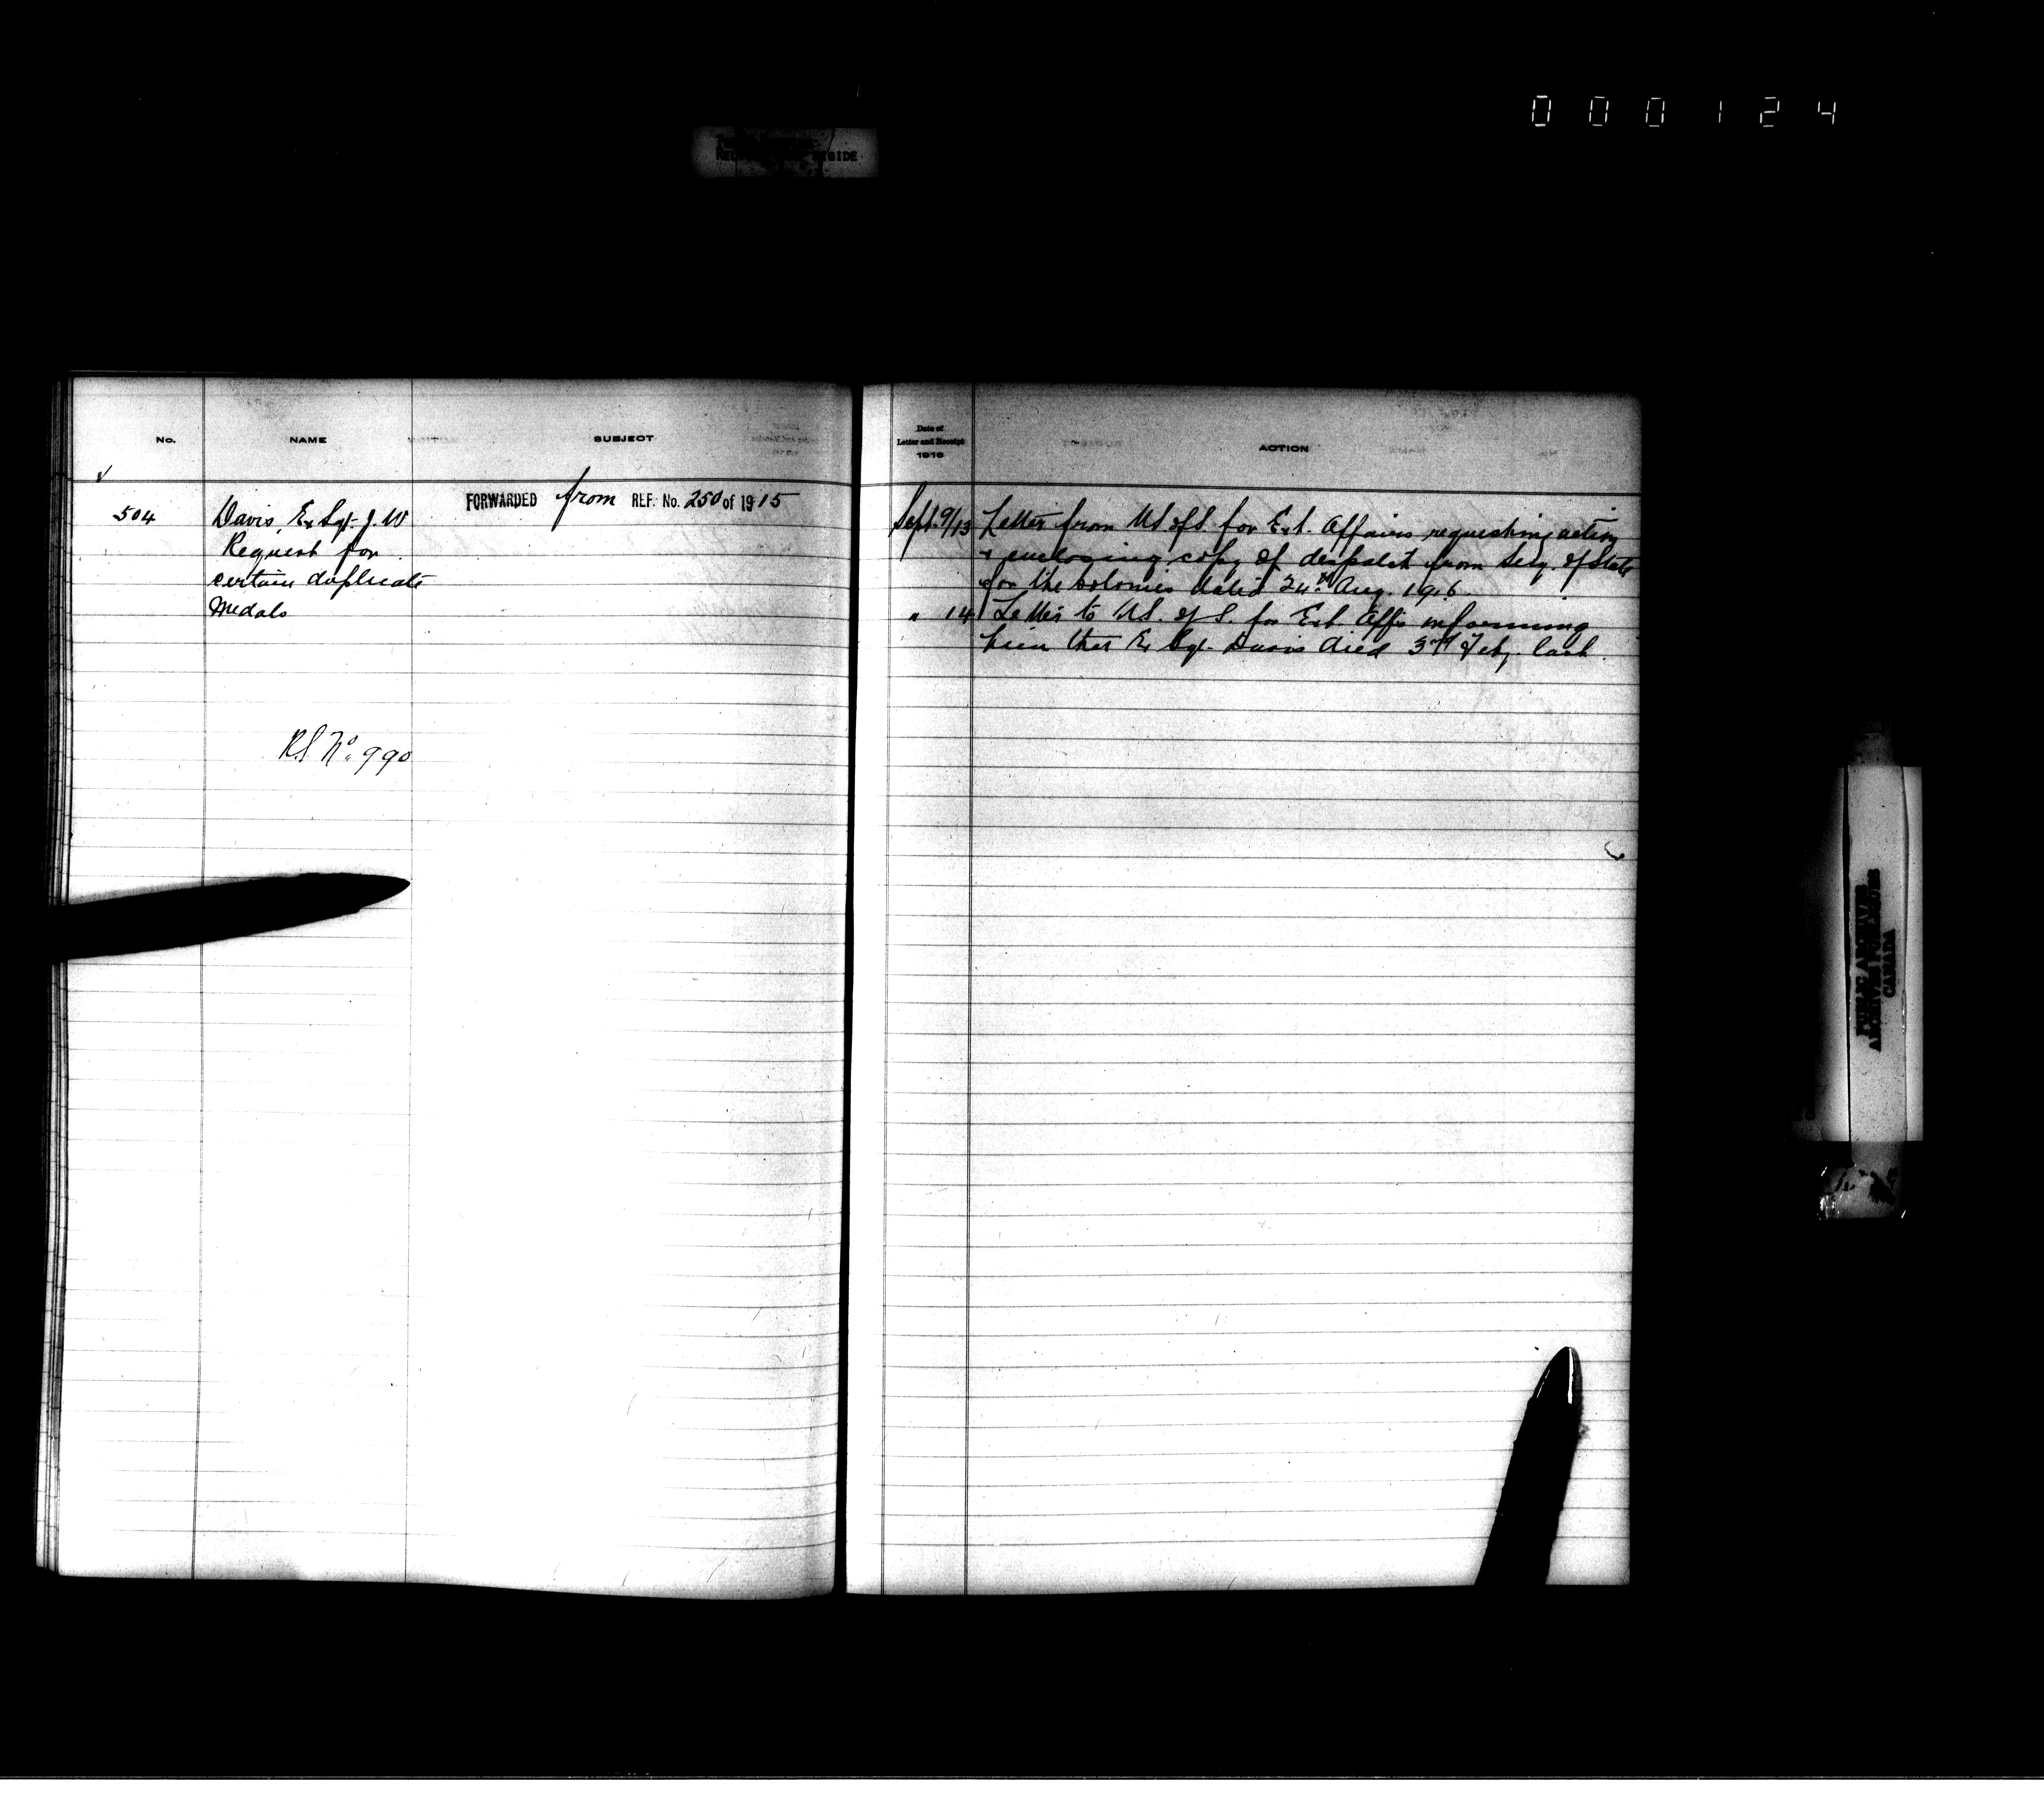 000124
No. NAME SUBJECT
FORWARDED from REF. No. 250 of 1915
504 Davis, Ex Sgt. J. W
Request for
certain duplicate
Medals
RS No. 990
Date of
Letter and Receipt
1916
ACTION
Sept. 9/13 Letter from U.S. of S. for Ext. Affairs requesting action
& enclosing copy of despatch from Secy. of State
for the Colonies dated 24th Aug. 1916.
" 14 Letter to U.S. of S. for Ext Affs informing
him that Ex Sgt. Davis died 3rd Feby. last.
PUBLIC ARCHIVES
ARCHIVES PUBLIQUES
CANADA